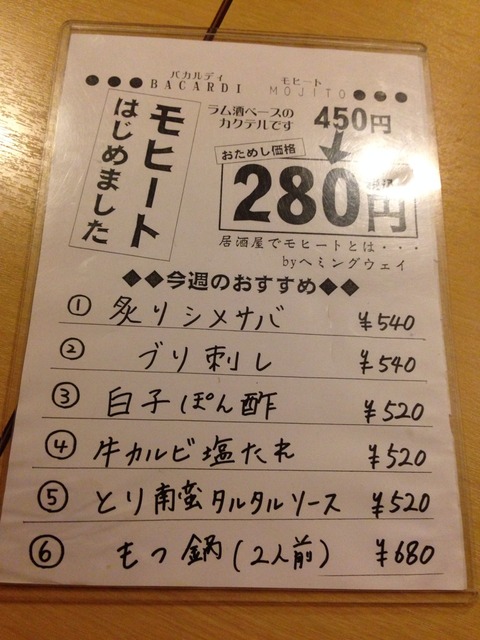 バカルディ モヒート
●●●BACARDI MOJITO●●●
モヒート
はじめました
ラム酒ベースの
カクテルです
450円
おためし価格
280円
居酒屋でモヒートとは・・・
byヘミングウェイ
◆◆今週のおすすめ◆◆
① 炙りシメサバ ¥540
② ブリ刺し ¥540
③ 白子ぽん酢 ¥520
④ 牛カルビ塩たれ ¥520
⑤ とり南蛮タルタルソース ¥520
⑥ もつ鍋(2人前) ¥680